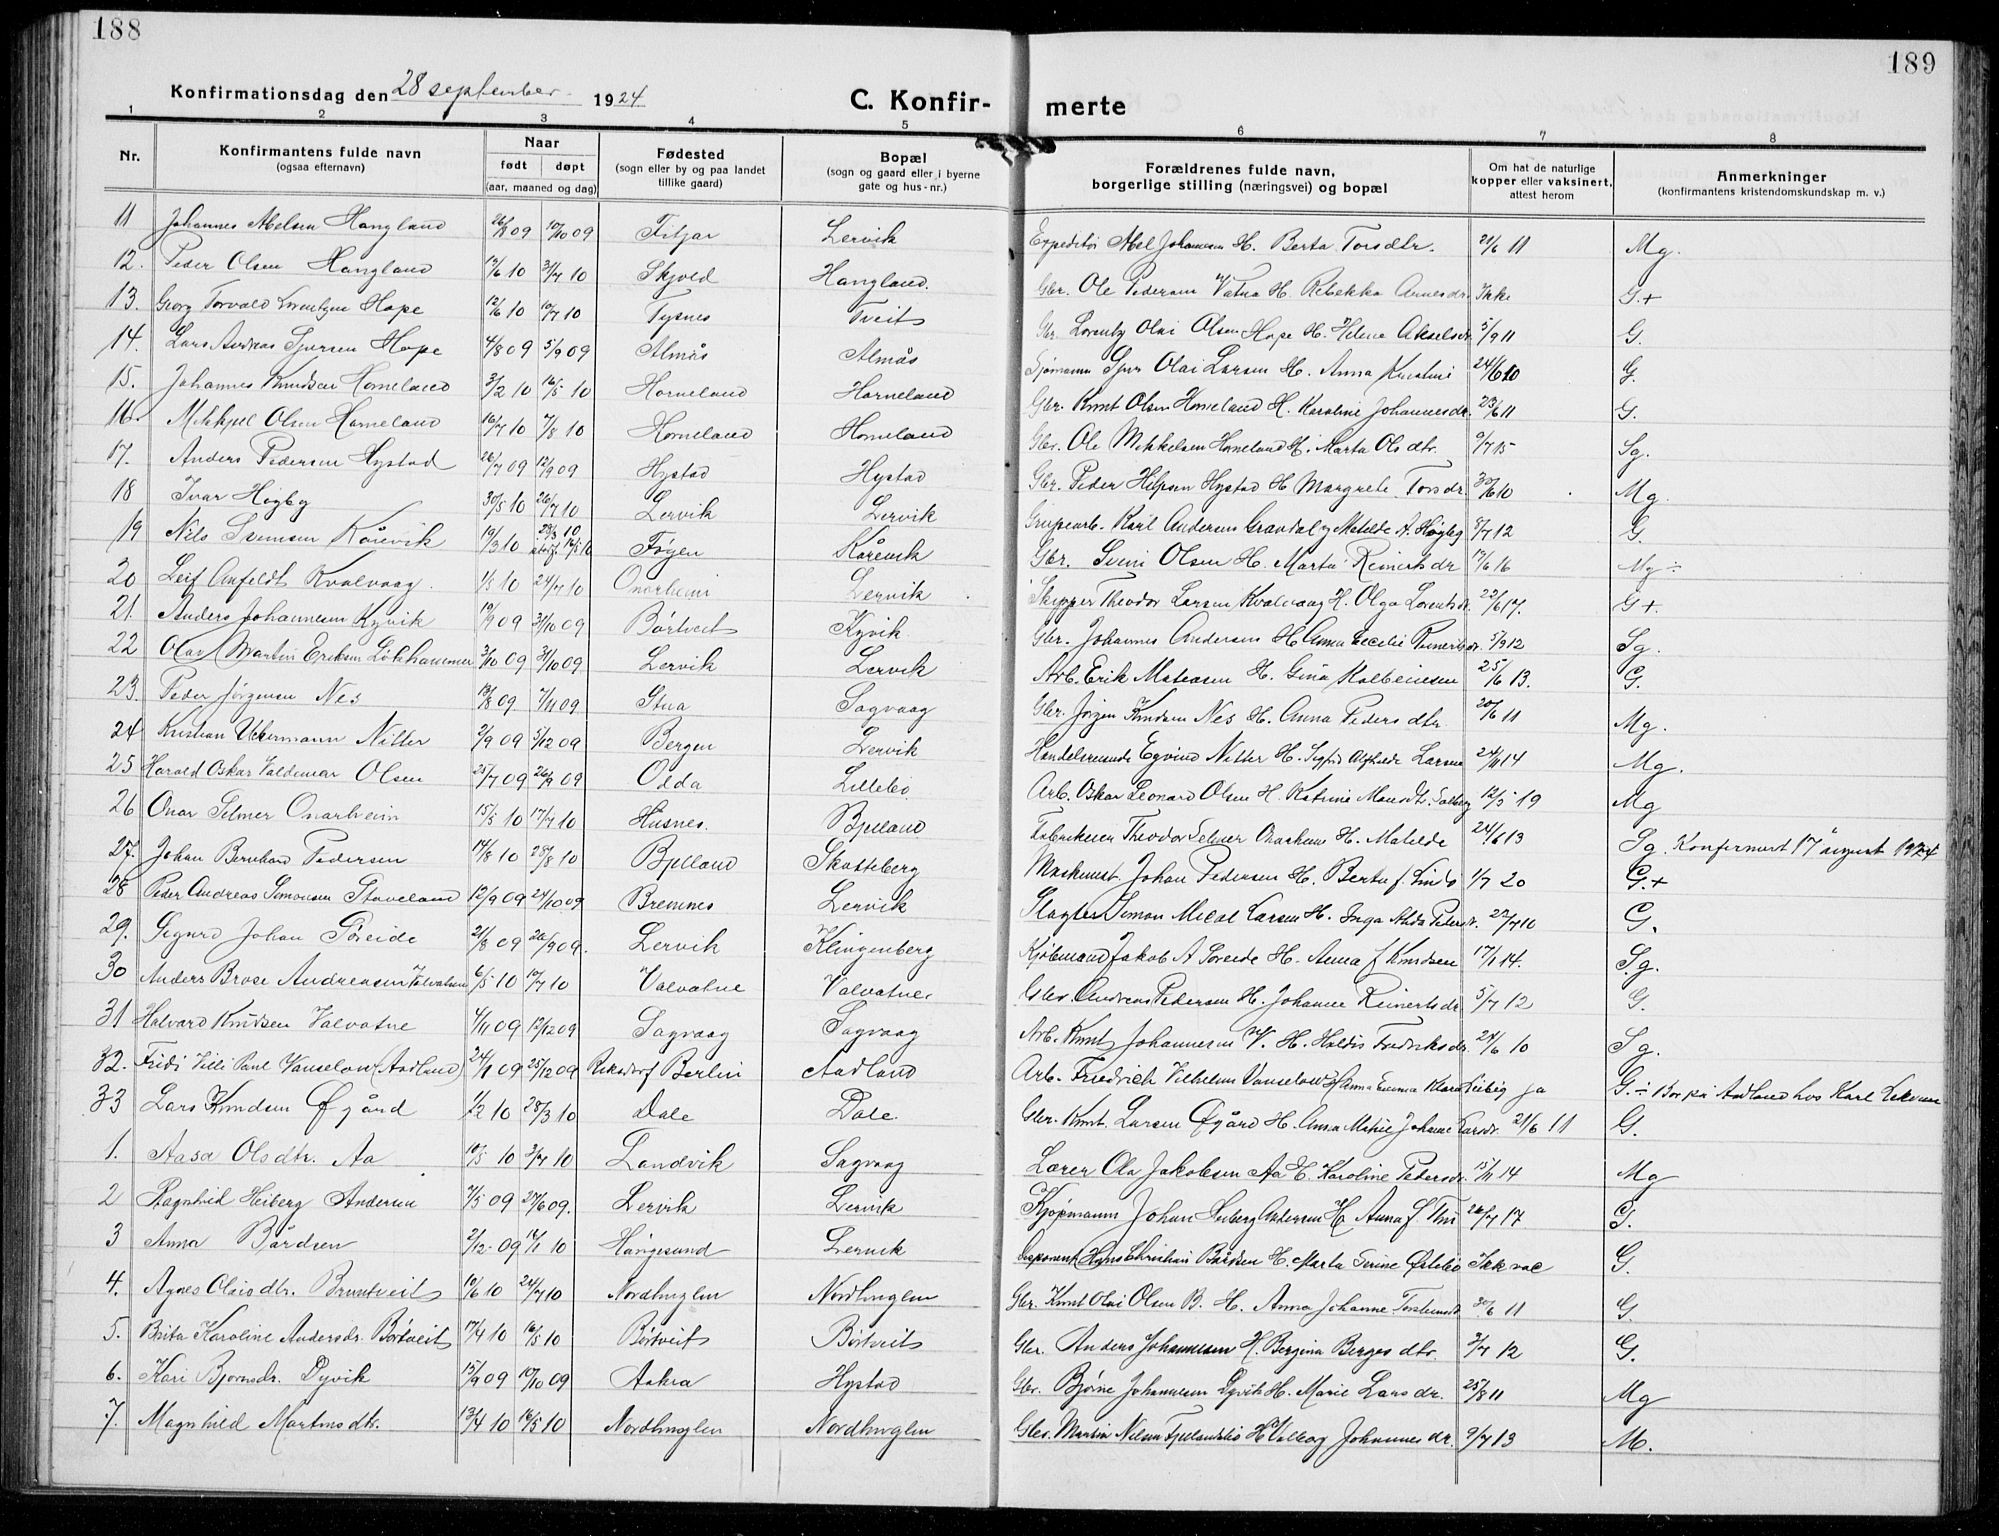 188
189
Konfirmationsdag den 28 september 1924
C. Konfir-
merte
1 2 3 4 5 6 7 8
Nr.
Konfirmantens fulde navn
(ogsaa efternavn)
Naar
født døpt
(aar, maaned og dag)
Fødested
(sogn eller by og paa landet
tillike gaard)
Bopæl
(sogn og gaard eller i byerne
gate og hus-nr.)
Forældrenes fulde navn,
borgerlige stilling (næringsvei) og bopæl
Om hat de naturlige
kopper eller vaksinert,
attest herom
Anmerkninger
(konfirmantens kristendomskundskap m. v.)
11 Johannes Abelsen Hangland 26/8 09 10/10 09 Fitjar Lervik Expeditør Abel Johannesen H. Berta Torsdtr. 21/6 11 Mg.
12. Peder Olsen Hangland 10 3/7 10 Skjold Hangland. Gbr. Ole Pedersen Vatna H. Rebekka Arnesdr. Ikke G+
13. Georg Torvald Lorentzen Hope 12/6 10 10/7 10 Tysnes Tveit Gbr. Lorentz Olai Olsen Hope H. Helene Akselsdr. 5/9 11 G.
14. Lars Andreas Sjursen Hope 4/8 09 5/9 09 Almås Almås Sjømann Sjur Olai Larsen H. Anna Kristine 24/6 10 G.
15. Johannes Knudsen Horneland 3/2 10 16/5 10 Horneland Horneland Gbr. Knut Olsen Horneland H. Karoline Johannesdr. 23/6 11 G.
16. Mikkjel Olsen Horneland 16/7 10 7/8 10 Horneland Horneland Gbr. Ole Mikkelsen Horneland H. Marta Olsdtr. 9/7 15 Sg.
17. Anders Pedersen Hystad 26/7 09 12/9 09 Hystad Hystad Gbr. Peder Helgesen Hystad H Margrete Torsdr. 30/6 10 Mg.
18 Ivar Høgby 30/5 10 26/7 10 Lervik Lervik Grubearb. Karl Andersen Gravdal og Matilde A. Høgby 8/7 12 G.
19 Nils Svensen Kårevik 19/3 10 28/3 10 stadf. 16/5 10 Føyen Kårevik Gbr. Svein Olsen H. Marta Reinertsdr 17/6 16 Mg ÷
20 Leif Anfeldt Kvalvaag. 1/5 10 24/7 10 Onarheim Lervik Skipper Theodor Larsen Kvalvaag H. Olga Lorentsdr. 22/6 17. G+.
21. Anders Johannesen Kyvik 19/9 09 31/10 09 Børtveit Kyvik Gbr. Johannes Andersen H Anna Cecelie Reinertsdr. 5/9 12 Sg.
22 Olav Martin Eriksen Løkhammer 3/10 09 31/10 09 Lervik Lervik Arb. Erik Matiasen H. Gina Kolbeinsen 25/6 13. G.
23. Peder Jørgensen Nes 13/8 09 7/11 09 Stua Sagvaag Gbr. Jørgen Knudsen Nes H. Anna Pedersdtr. 20/6 11 Mg.
24 Kristian Uckermann Nitter 2/9 09 5/12 09 Bergen Lervik Handelsreisende Eyvind Nitter H. Sigfrid Alfhilde Larsen 24/11 14 Mg.
25 Harald Oskar Valdemar Olsen 25/7 09 26/9 09 Odda Lillebø Arb. Oskar Leonard Olsen H. Katrine Monsdtr. Solberg 12/5 19 Mg
26 Onar Selmer Onarheim 15/5 10 17/7 10 Husnes. Bjelland Fabrikeier Theodor Selmer Onarheim H. Matilde 24/6 13 Sg. Konfirmert 17 august 1924
27. Johan Bernhard Pedersen 14/8 10 28/8 10 Bjelland Skotteberg Maskinist Johan Pedersen H. Berta f. Lind 1/7 20 G.+
28 Peder Andreas Simonsen Staveland 12/9 09 24/10 09 Bremnes Lervik Slagter Simon Mical Larsen H. Inga Alida Pedersdr. 22/7 10 G.
29. Sigurd Johan Søreide 21/8 09 26/9 09. Lervik Klingenberg Kjøbmand Jakob A Søreide H. Anna f Knudsen 17/1 14. Sg.
30 Anders Brose Andreasen Valvatne 6/5 10 10/7 10 Valvatne Valvatne Gbr. Andreas Pedersen H. Johanne Reinertsdr. 5/7 12 G.
31 Halvard Knudsen Valvatne 4/11 09 12/12 09 Sagvaag Sagvaag Arb. Knut Johannesen V. H. Haldis Fredriksdr. 24/6 10 Sg.
32. Fridi Villi Paul Vanselow (Aadland) 24/11 09 25/12 09 Riksdorf Berlin Aadland Arb. Friedrich Vilhelm Vanselow H Anna Emma Klara Liebig ja G. ÷ Bor på Aadland hos Karl Lekven
33 Lars Knudsen Øgård 1/2 10 28/3 10 Dale Dale. Gbr. Knut Larsen Øgård H. Anna Marie Johanne Larsdr. 21/6 11 G.
1. Aasa Olsdtr. Aa 10/5 10 3/7 10 Landvik Sagvaag Lærer Ola Jakobsen Aa H. Karoline Pedersdr. 15/11 14 Mg
2 Ragnhild Heiberg Andersen 7/5 09 27/6 09. Lervik Lervik Kjøpmann Johan Heiberg Andersen H Anna f. 26/7 17 G.
3 Anna Bårdsen 2/12 09 16/1 10 Haugesund Lervik Disponent Hans Christian Bårdsen H. Marta Serine Østebø Ikk vac G.
4. Agnes Olaisdtr. Bruntveit 10/6 10 24/7 10 Nordhuglen Nordhuglen Gbr. Knut Olai Olsen B. H. Anna Johanne Torsteinsdr 30/6 11 G.
5. Brita Karoline Andersdr. Børtveit 17/4 10 16/5 10 Børtveit Børtveit Gbr. Anders Johannesen H. Bergina Bergesdtr. 3/7 12 G.
6. Kari Bjørnsdr. Dyvik 15/9 09 10/10 09 Aakra Hystad Gbr. Bjørne Johannesen Dyvik H. Marie Larsdr. 25/8 11 Mg
7. Magnhild Martinsdtr. 13/4 10 16/5 10 Nordhuglen Nordhuglen Gbr. Martin Nilsen Fjellandsbø H Valborg Johannesdr. 9/7 13 M.